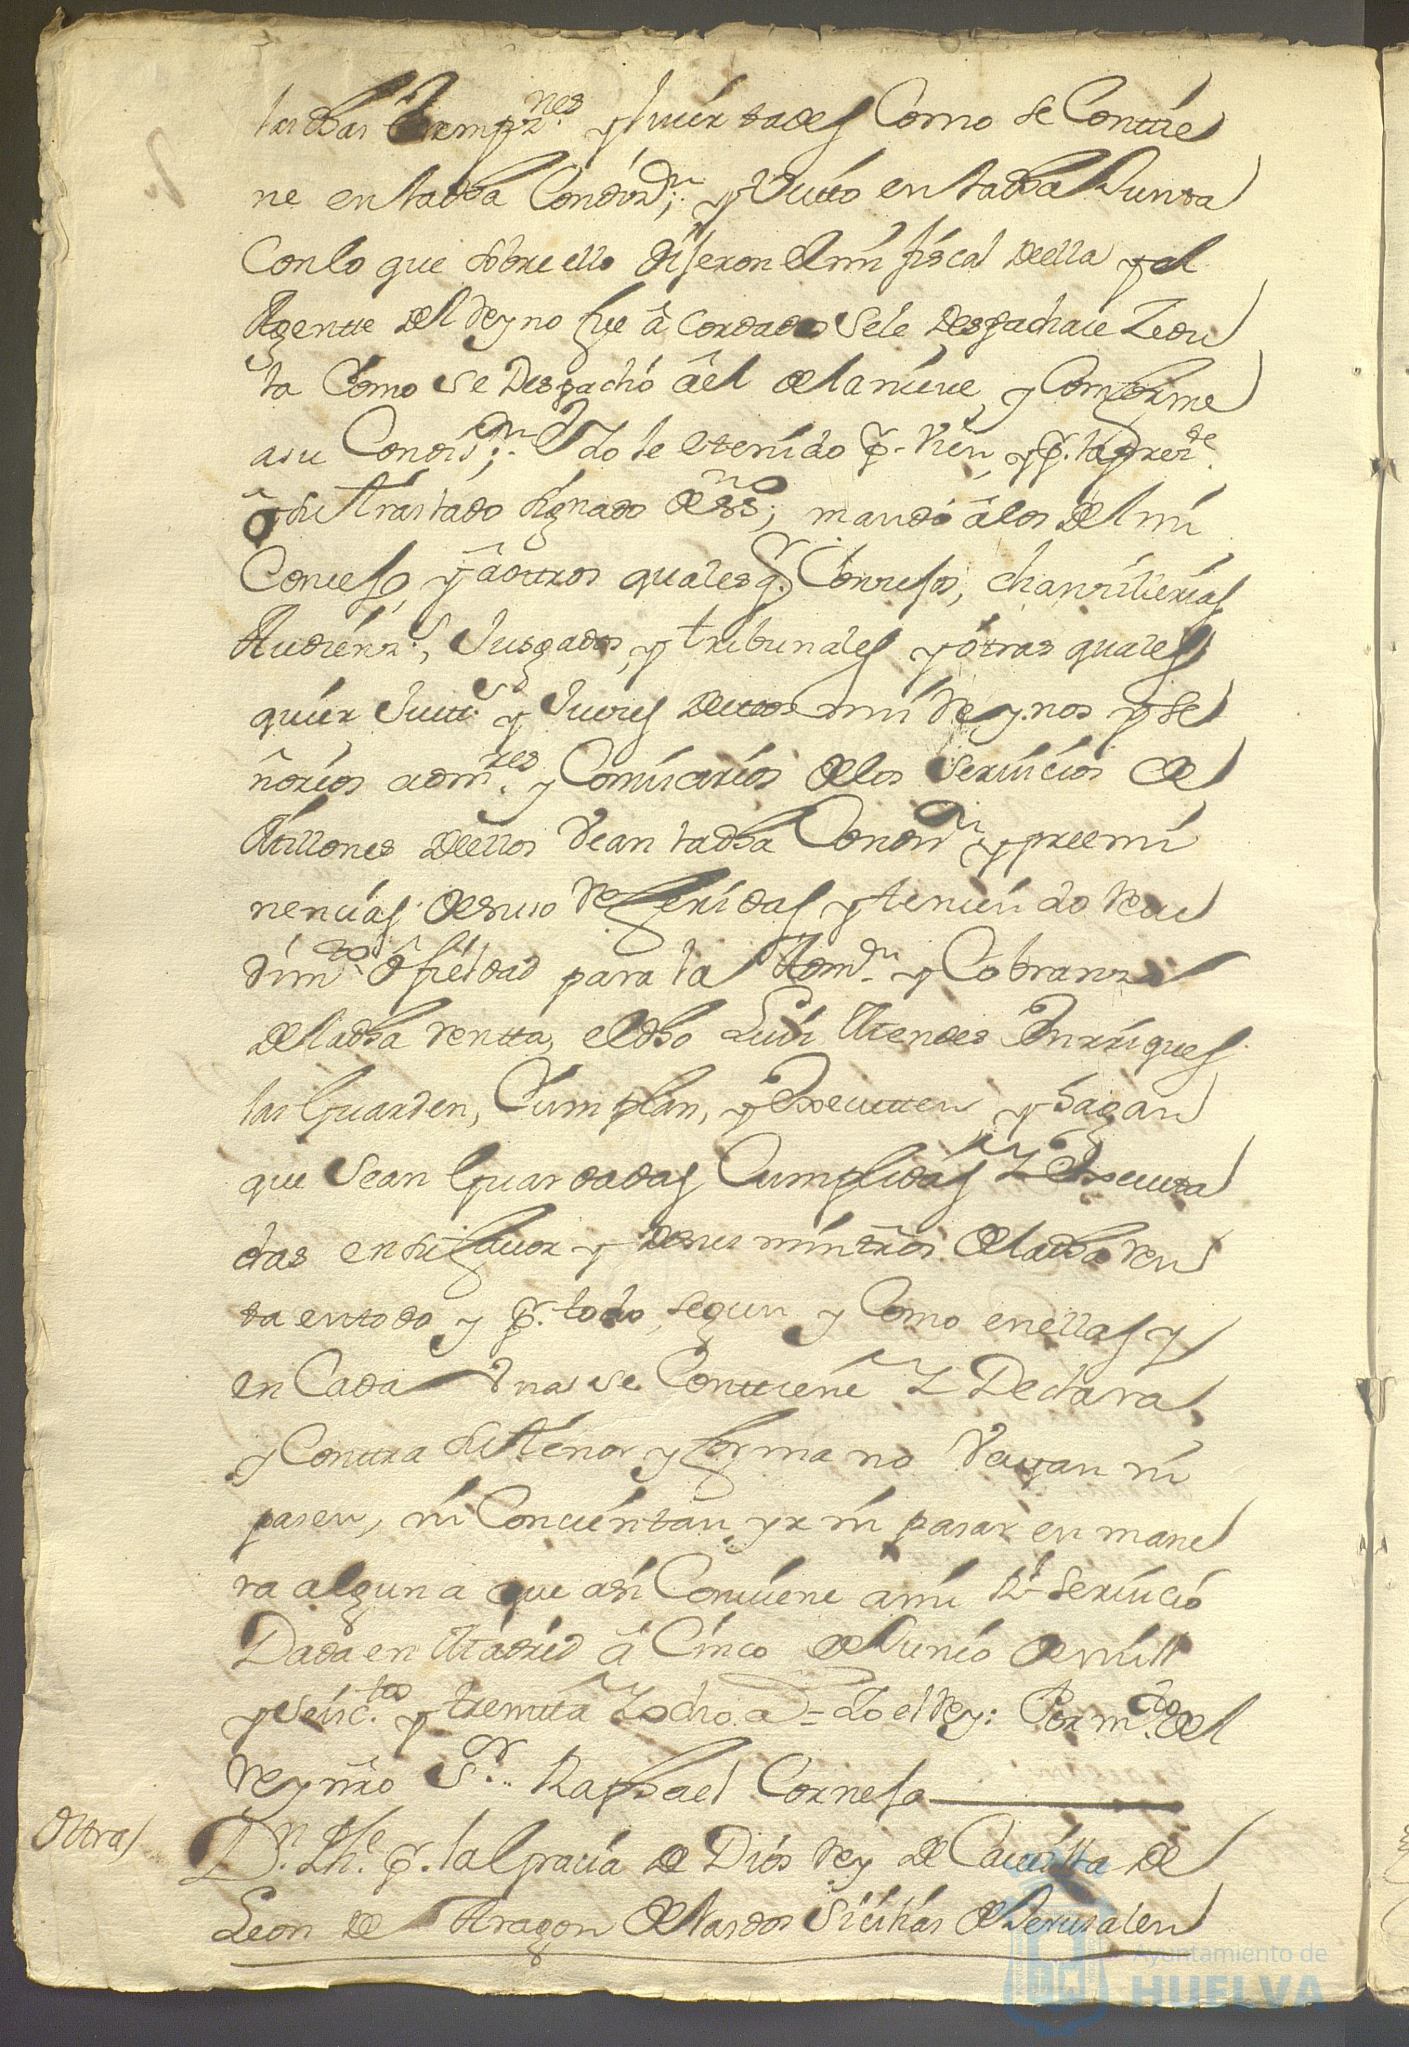 las dhas Exempz.nes y livertades Como se Contie
ne en la dha Condiz.n; y Visto en la dha Junta
Con lo que sobre ello dijeron el mi fiscal della y el
Agente del Reyno fue acordado se le Despachase Zedu
la Como se Despachó â el de la nieve, y Conforme
a su Condis.n; Y Yo lo e tenido p.r vien, y p.r la prez.te
ô su traslado signado de ss.no; mando â los del mi
Consejo, y â otros qualesq.r Consejos, chanzillerias
Audienz.s, Jusgados, y tribunales y otras quales
quier Justt.s y Jueses destos mis Reynos y se
ñorios adm.res y Comisarios de los servicios de
Millones dellos Vean la dha Condiz.n y preemi
nencias de suso Referidas y teniendo Recu
dim.to ô fieldad para la Adm.n y Cobranza
de la dha rentta, el dho Luis Mendes Enrriques
las Guarden, Cumplan, y Executten y hagan
que sean Guardadas Cumplidas Y Executa
das en su favor y de sus ministros de la dha ren
ta en todo y p.r todo, segun y Como en ellas y
en Cada Vna se Conttiene Y Declara
y Contra su thenor y forma no Vayan ni
pasen, ni Concientan yr ni pasar en mane
ra alguna que asi Conviene a mi R.l servicio
Dada en Madrid â Cinco de Junio de mill
y seisc.tos y treintta Y ocho a = Yo el Rey: Por m.do del
Rey nro S.r.. Raphael Cornejo
Ottra
D.n Ph.e p.r la Gracia de Dios Rey de Castilla de
Leon de Aragon de las dos Sicilias de Jerusalen
Ayuntamiento de
HUELVA